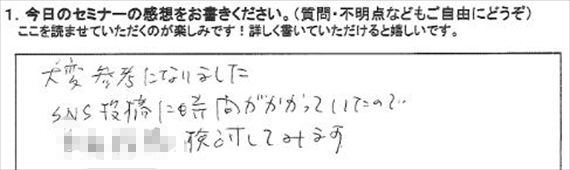 1. 今日のセミナーの感想をお書きください。（質問・不明点などもご自由にどうぞ）
ここを読ませていただくのが楽しみです！詳しく書いていただけると嬉しいです。
大変参考になりました
SNS投稿に時間がかかっていたので
検討してみます